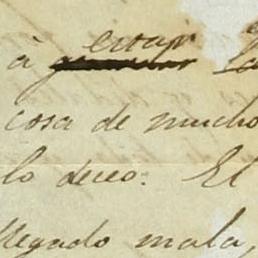 à
cosa de mucho
lo deceo. El
llegado mala,